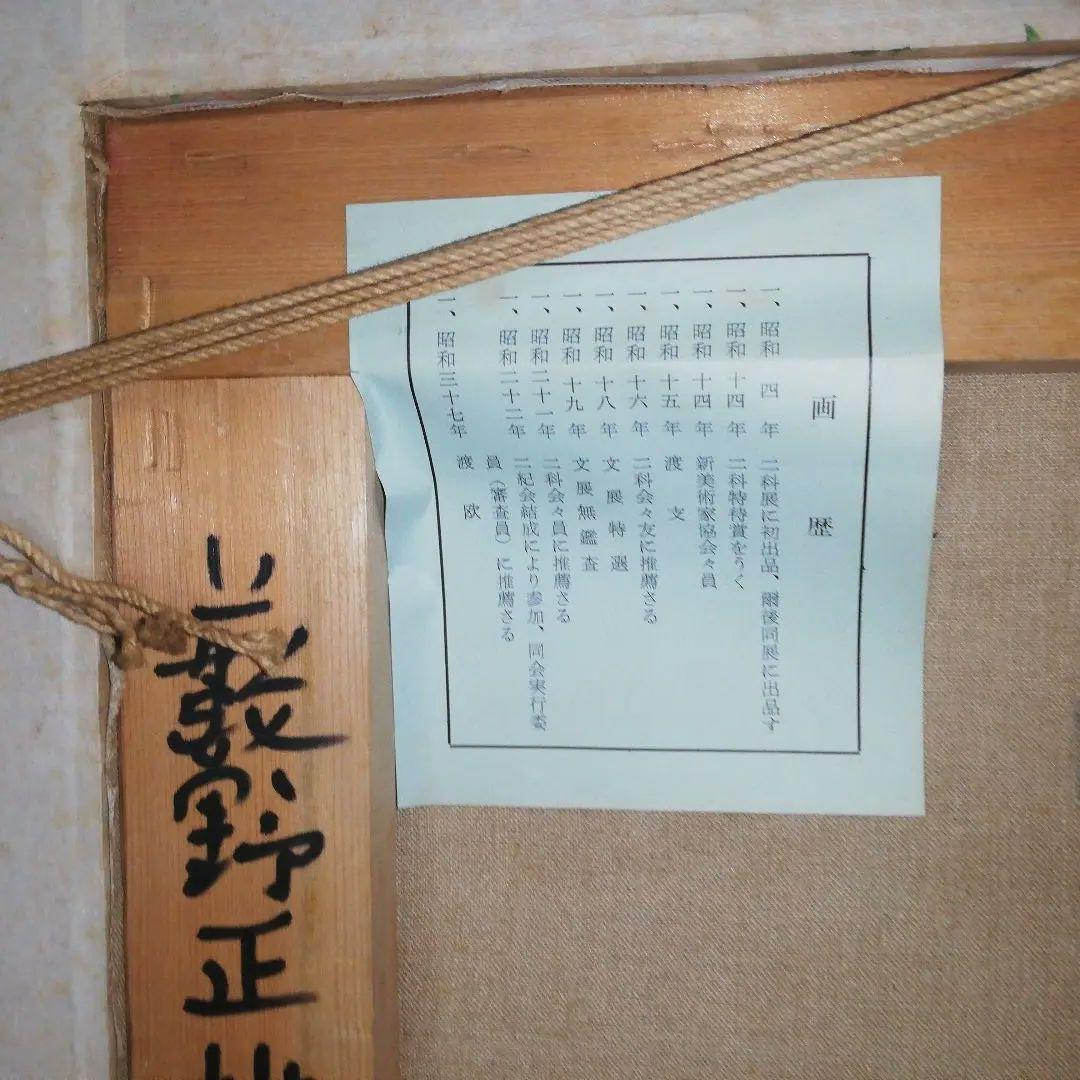 画歴
一、昭和 四 年 二科展に初出品、爾後同展に出品す
一、昭和 十四 年 二科特待賞をうく
一、昭和 十四 年 新美術家協会々員
一、昭和 十五 年 渡支
一、昭和 十六 年 二科会々友に推薦さる
一、昭和 十八 年 文展特選
一、昭和 十九 年 文展無鑑査
一、昭和二十一年 二科会々員に推薦さる
一、昭和二十二年 二紀会結成により参加、同会実行委
員(審査員)に推薦さる
一、昭和三十七年 渡欧
藪野正